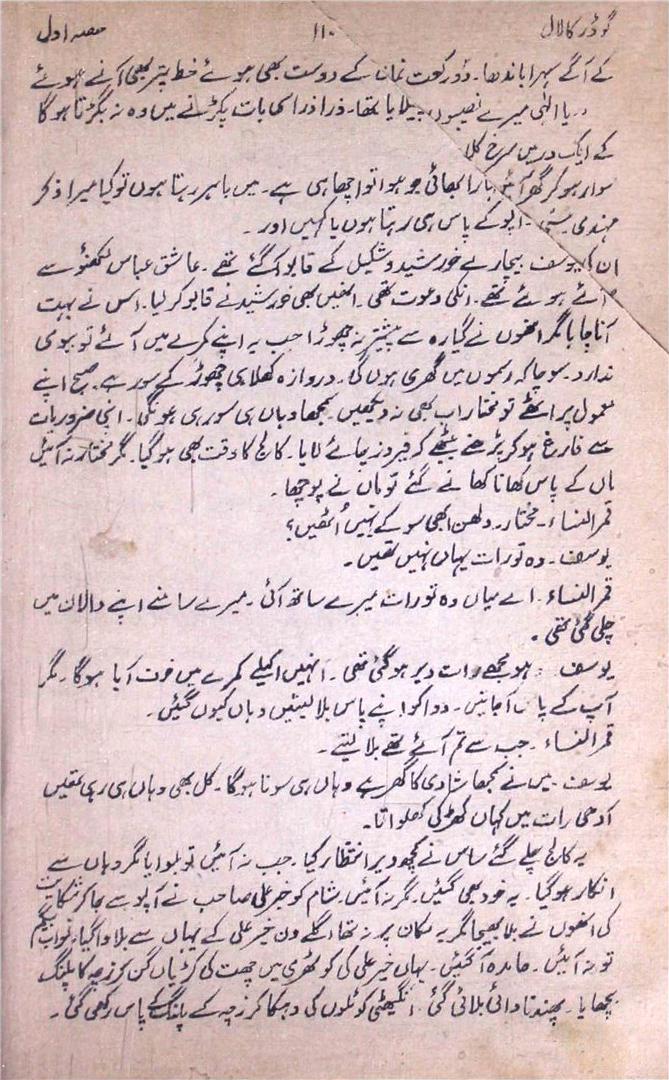 گودڑ کا لال ۱۱۰ حصہ اول
کے آگے سہرا باندھا۔ دو رکعت نماز کے دوست بھی ہوئے خط پتر بھی آنے ہوئے
یا الٰہی میرے نصیبوں تھا۔ ذرا ذرا سی بات پکڑنے میں وہ نہ بگڑتا ہوگا
کے ایک در میں سرخ کلا
سوار ہو کر گھر بھائی جو ہوا تو اچھا ہی ہے۔ میں باہر رہتا ہوں تو کیا میرا ذکر
مہندی کے پاس ہی رہتا ہوں یا کہیں اور۔
ان یوسف بیچارے خورشید و شکیل کے قابو آگئے تھے۔ عاشق عباس لکھنؤ سے
آئے ہوئے تھے۔ انکی دعوت تھی۔ انہیں بھی خورشید نے قابو کر لیا۔ اس نے بہت
آنا چاہا مگر انھوں نے گیارہ سے پیشتر نہ چھوڑا جب یہ اپنے کمرے میں آئے تو بیوی
ندارد۔ سوچا کہ رسموں میں گھری ہوں گی۔ دروازہ کھلا ہی چھوڑ کے سو رہے۔ صبح اپنے
معمول پر اٹھے تو مختار اب بھی نہ دیکھیں سمجھا وہاں ہی سو رہی ہونگی۔ اپنی ضروریات
سے فارغ ہو کر پڑھنے بیٹھے کہ فیروز چائے لایا۔ کالج کا وقت بھی ہوگیا۔ مگر مختار نہ آئیں
ماں کے پاس کھانا کھانے گئے تو ماں نے پوچھا۔
قمر النساء۔ مختار دلھن ابھی سو کے نہیں اُٹھیں؟
یوسف۔ وہ تو رات یہاں نہیں تھیں۔
قمر النساء۔ اے میاں وہ تو رات میرے ساتھ آئی۔ میرے سامنے اپنے دالان میں
چلی گئی تھی۔
یوسف۔ مجھے رات دیر ہو گئی تھی۔ انہیں اکیلے کمرے میں خوف آیا ہوگا۔ مگر
آپ کے پاس آجاتیں۔ دوا کو اپنے پاس بلا لیتیں وہاں کیوں گئیں۔
قمر النساء۔ جب سے تم آئے تھے بلا لیتے۔
یوسف۔ میں نے سمجھا شادی کا گھر ہے وہاں ہی سونا ہوگا۔ کل بھی وہاں ہی رہی تھیں
آدھی رات میں کہاں کھڑکی کھلواتا۔
یہ کالج چلے گئے ساس نے کچھ دیر انتظار کیا۔ جب نہ آئیں تو بلوایا مگر وہاں سے
انکار ہوگیا۔ یہ خود بھی گئیں۔ مگر نہ آئیں۔ شام کو خیر علی صاحب نے آپو سے جا کر شکایت
کی انھوں نے بلا بھیجا مگر یہ مکان پر نہ تھا اگلے دن خیر علی کے یہاں سے بلاوا گیا۔ نواب بیگم
تو نہ آئیں۔ حامدہ آ گئیں۔ یہاں خیر علی کی کوٹھری میں چھت کی کڑیاں گن کر زچہ کا پلنگ
بچھایا۔ دائی بلائی گئی۔ انگیٹھی کوئلوں کی دہکا کر زچہ کے پلنگ کے پاس رکھی گئی۔